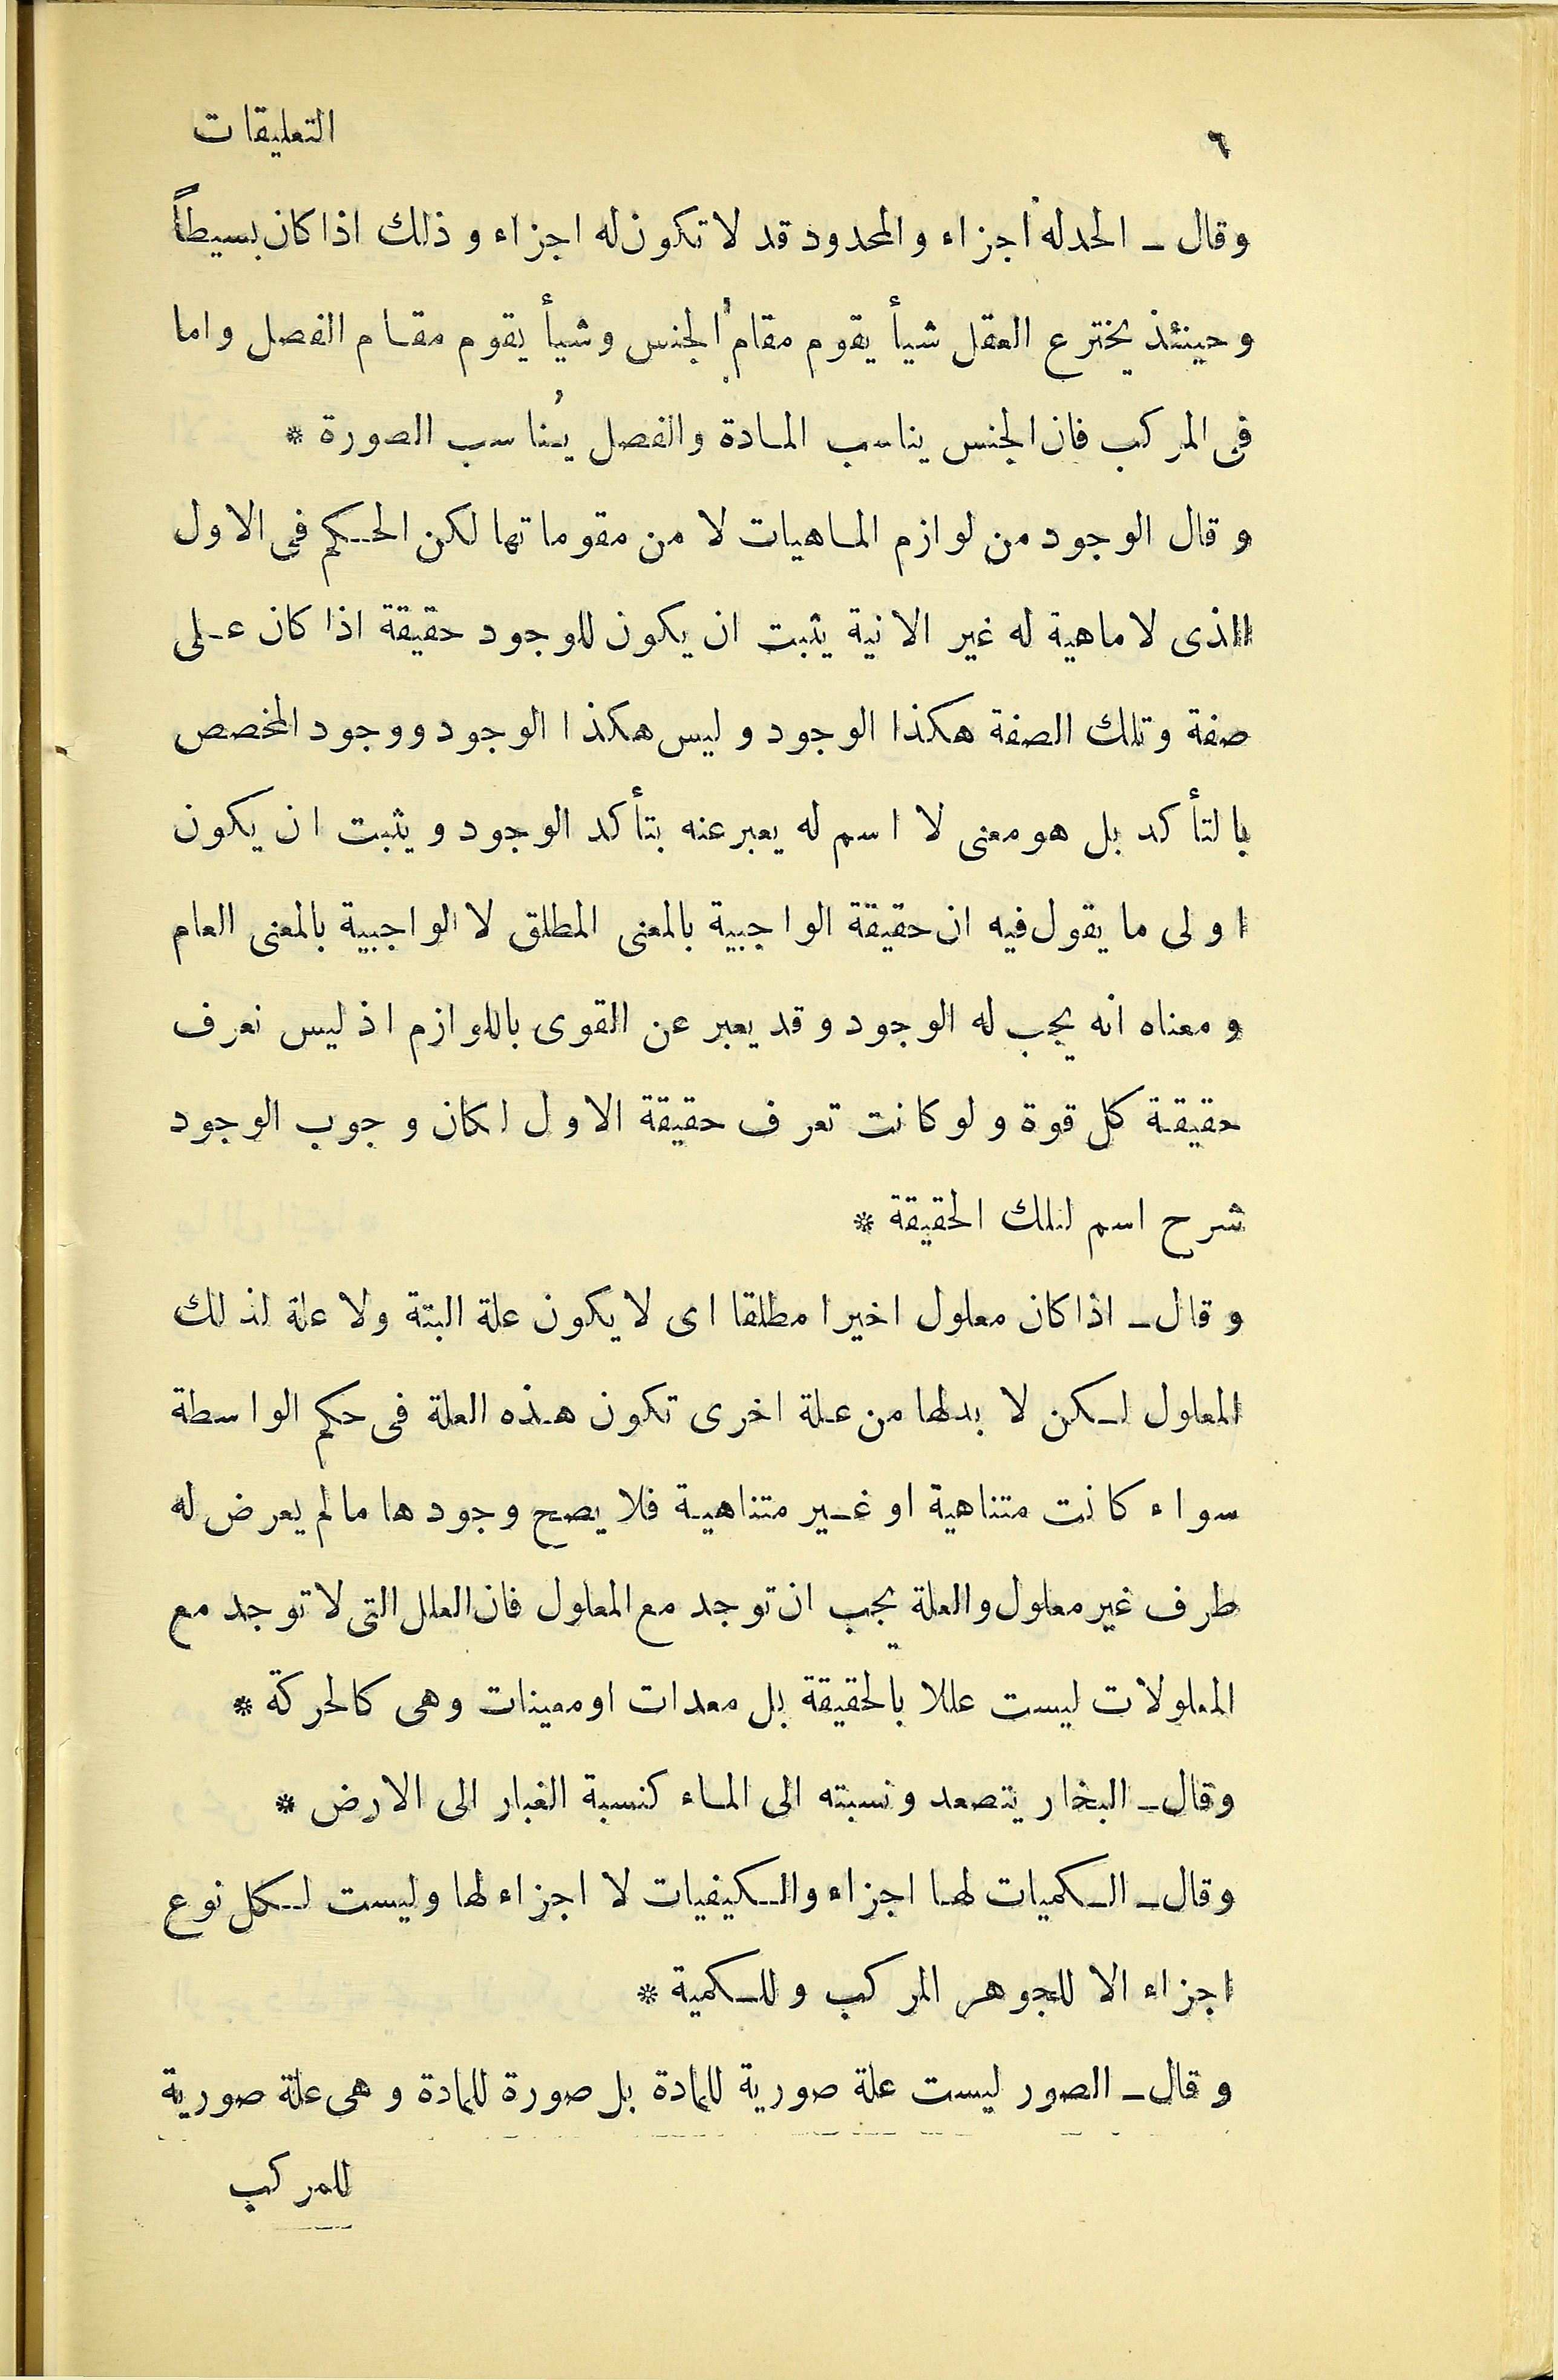 ٦
التعليقات
وقال ـ الحد له أجزاء والمحدود قد لا تكون له اجزاء وذلك اذا كان بسيطاً
وحينئذ يخترع العقل شيأ يقوم مقام الجنس وشيأ يقوم مقام الفصل واما
فى المركب فان الجنس يناسب المادة والفصل يُناسب الصورة *
وقال الوجود من لوازم الماهيات لا من مقوماتها لكن الحكم فى الاول
الذى لا ماهية له غير الانية يثبت ان يكون للوجود حقيقة اذا كان على
صفة وتلك الصفة هكذا الوجود وليس هكذا الوجود ووجود المخصص
بالتأكد بل هو معنى لا اسم له يعبر عنه بتأكد الوجود ويثبت ان يكون
اولى ما يقول فيه ان حقيقة الواجبية بالمعنى المطلق لا الواجبية بالمعنى العام
ومعناه انه يجب له الوجود وقد يعبر عن القوى باللوازم اذ ليس نعرف
حقيقة كل قوة ولو كانت تعرف حقيقة الاول لكان وجوب الوجود
شرح اسم لتلك الحقيقة *
وقال ـ اذا كان معلول اخيرا مطلقا اى لا يكون علة البتة ولا علة لذلك
المعلول لكن لا بد لها من علة اخرى تكون هذه العلة فى حكم الواسطة
سواء كانت متناهية او غير متناهية فلا يصح وجودها ما لم يعرض له
طرف غير معلول والعلة يجب ان توجد مع المعلول فان العلل التى لا توجد مع
المعلولات ليست عللا بالحقيقة بل معدات او معينات وهى كالحركة *
وقال ـ البخار يتصعد ونسبته الى الماء كنسبة الغبار الى الارض *
وقال ـ الكميات لها اجزاء والكيفيات لا اجزاء لها وليست لكل نوع
اجزاء الا للجوهر المركب وللكمية *
وقال ـ الصور ليست علة صورية للمادة بل صورة للمادة وهى علة صورية
للمركب